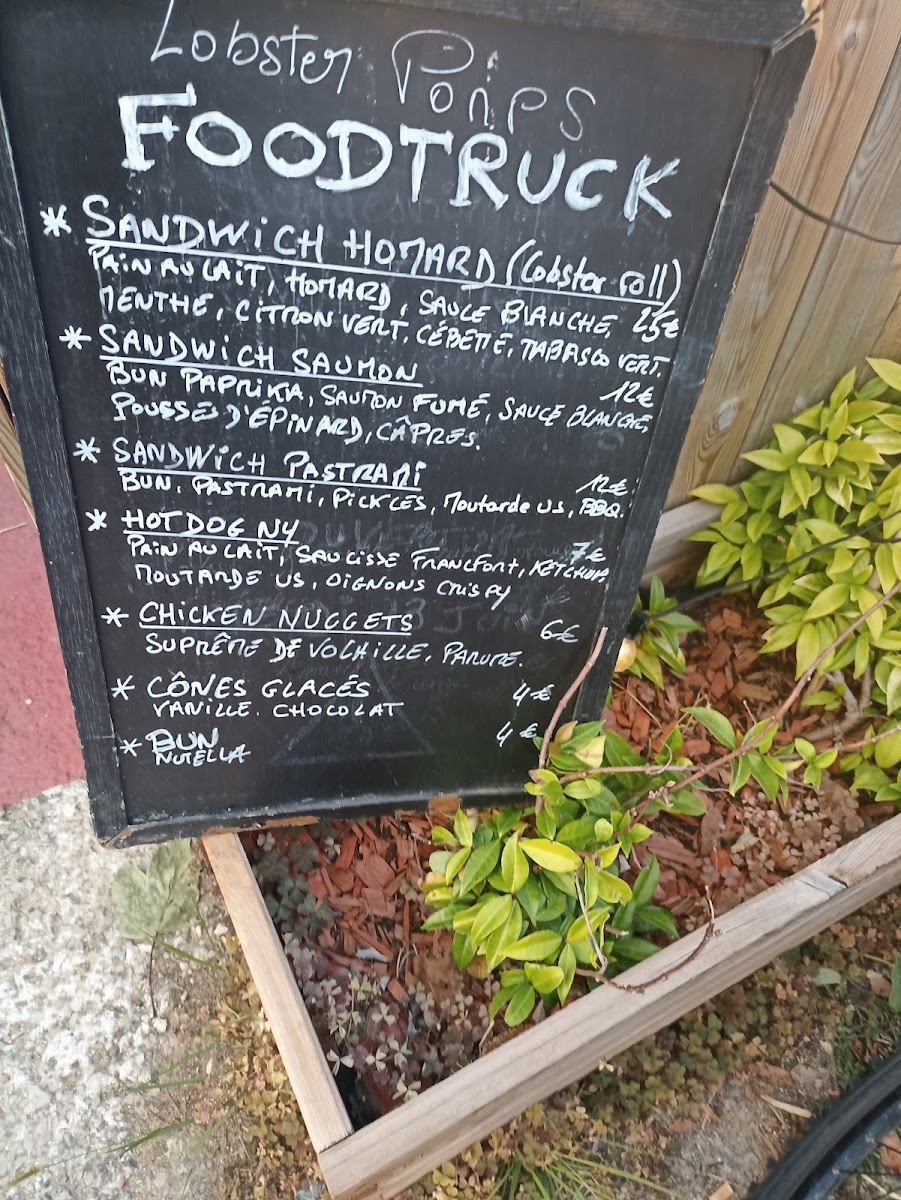 Lobster Ponps
FOODTRUCK
* SANDWiCH HOMARD (Lobster roll)
PAIN AU LAIT, HOMARD, SAUCE BLANCHE, 25€
MENTHE, CITRON VERT, CÉBETTE, TABASCO VERT.
* SANDWiCH SAUMON 12€
BUN PAPRIKA, SAUMON FUMÉ, SAUCE BLANCHE,
POUSSES D'ÉPINARD, CÂPRES.
* SANDWICH PASTRAMi 12€
BUN, PASTRAMI, PICKLES, Moutarde US, BBQ.
* HOT DOG NY 7€
PAIN AU LAIT, SAUCISSE FRANCFORT, KETCHUP,
MOUTARDE US, OIGNONS CRISPY
* CHICKEN NUGGETS 6€
SUPRÊME DE VOLAILLE, PANURE.
* CÔNES GLACÉS 4€
VANILLE. CHOCOLAT
* BUN 4€
NUTELLA